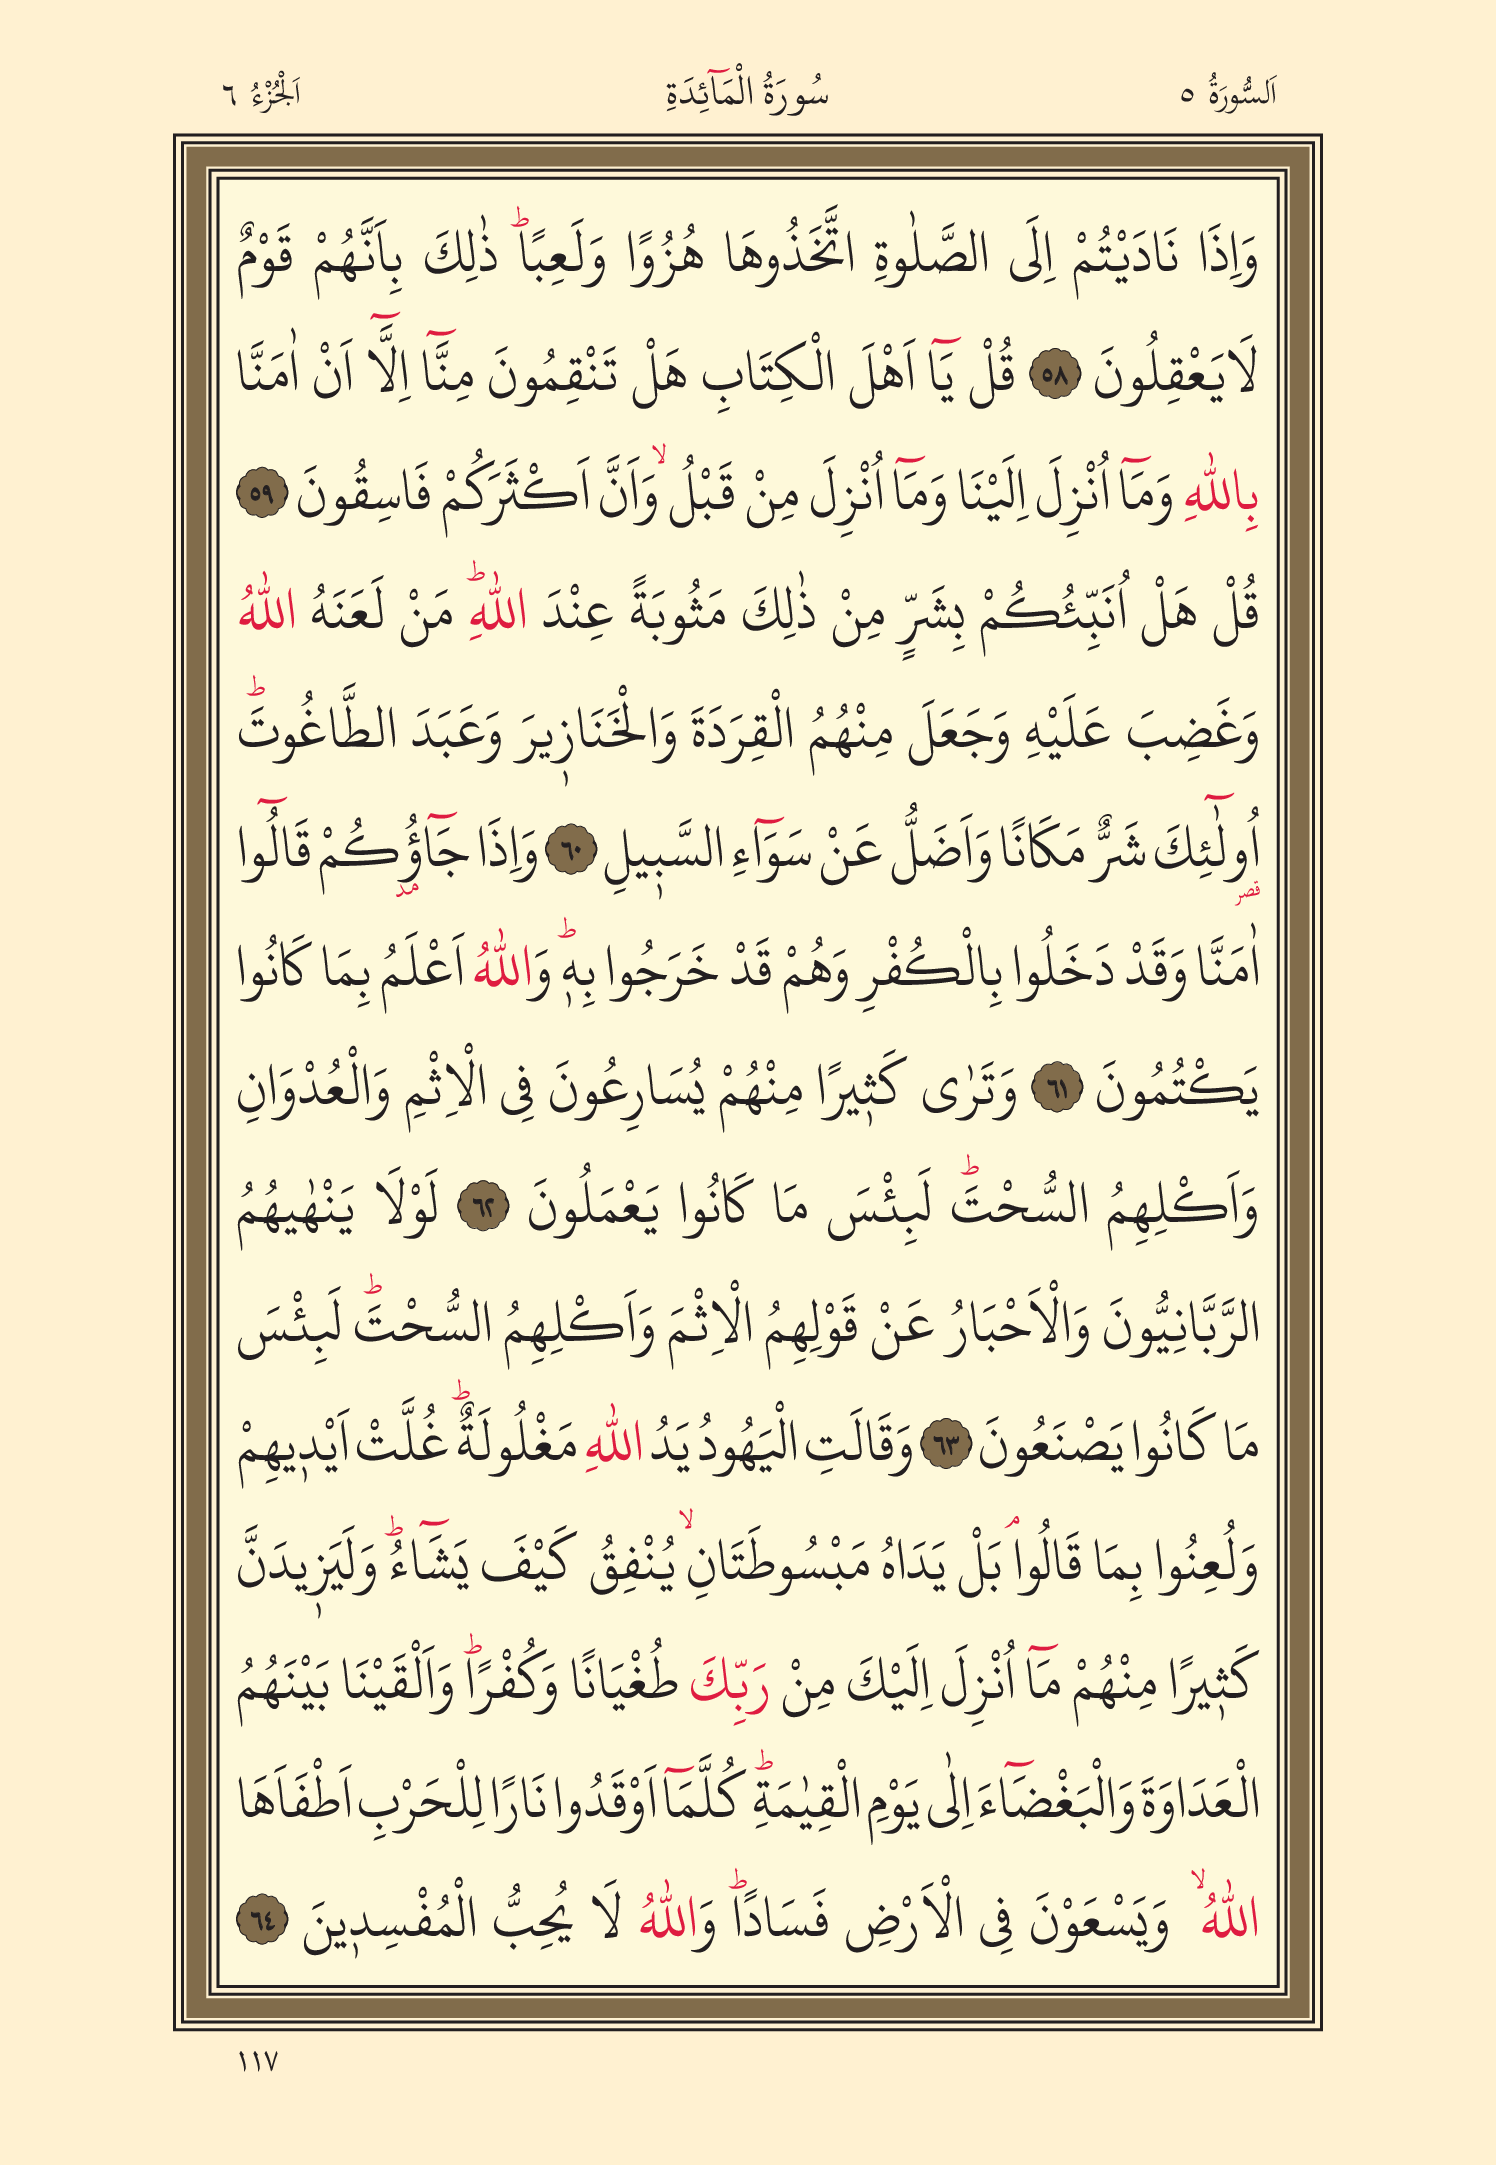 اَلسُّورَةُ ٥ سُورَةُ الْمَٓائِدَةِ اَلْجُزْءُ ٦
وَاِذَا نَادَيْتُمْ اِلَى الصَّلٰوةِ اتَّخَذُوهَا هُزُوًا وَلَعِبًاۜ ذٰلِكَ بِاَنَّهُمْ قَوْمٌ
لَا يَعْقِلُونَ ﴿٥٨﴾ قُلْ يَٓا اَهْلَ الْكِتَابِ هَلْ تَنْقِمُونَ مِنَّٓا اِلَّٓا اَنْ اٰمَنَّا
بِاللّٰهِ وَمَٓا اُنْزِلَ اِلَيْنَا وَمَٓا اُنْزِلَ مِنْ قَبْلُۙ وَاَنَّ اَكْثَرَكُمْ فَاسِقُونَ ﴿٥٩﴾
قُلْ هَلْ اُنَبِّئُكُمْ بِشَرٍّ مِنْ ذٰلِكَ مَثُوبَةً عِنْدَ اللّٰهِۜ مَنْ لَعَنَهُ اللّٰهُ
وَغَضِبَ عَلَيْهِ وَجَعَلَ مِنْهُمُ الْقِرَدَةَ وَالْخَنَاز۪يرَ وَعَبَدَ الطَّاغُوتَۜ
اُولٰٓئِكَ شَرٌّ مَكَانًا وَاَضَلُّ عَنْ سَوَٓاءِ السَّب۪يلِ ﴿٦٠﴾ وَاِذَا جَٓاؤُ۫كُمْ قَالُٓوا
قصر مد
اٰمَنَّا وَقَدْ دَخَلُوا بِالْكُفْرِ وَهُمْ قَدْ خَرَجُوا بِه۪ۜ وَاللّٰهُ اَعْلَمُ بِمَا كَانُوا
يَكْتُمُونَ ﴿٦١﴾ وَتَرٰى كَث۪يرًا مِنْهُمْ يُسَارِعُونَ فِى الْاِثْمِ وَالْعُدْوَانِ
وَاَكْلِهِمُ السُّحْتَۜ لَبِئْسَ مَا كَانُوا يَعْمَلُونَ ﴿٦٢﴾ لَوْلَا يَنْهٰيهُمُ
الرَّبَّانِيُّونَ وَالْاَحْبَارُ عَنْ قَوْلِهِمُ الْاِثْمَ وَاَكْلِهِمُ السُّحْتَۜ لَبِئْسَ
مَا كَانُوا يَصْنَعُونَ ﴿٦٣﴾ وَقَالَتِ الْيَهُودُ يَدُ اللّٰهِ مَغْلُولَةٌۜ غُلَّتْ اَيْد۪يهِمْ
وَلُعِنُوا بِمَا قَالُواۢ بَلْ يَدَاهُ مَبْسُوطَتَانِۙ يُنْفِقُ كَيْفَ يَشَٓاءُۜ وَلَيَز۪يدَنَّ
كَث۪يرًا مِنْهُمْ مَٓا اُنْزِلَ اِلَيْكَ مِنْ رَبِّكَ طُغْيَانًا وَكُفْرًاۜ وَاَلْقَيْنَا بَيْنَهُمُ
الْعَدَاوَةَ وَالْبَغْضَٓاءَ اِلٰى يَوْمِ الْقِيٰمَةِۜ كُلَّمَٓا اَوْقَدُوا نَارًا لِلْحَرْبِ اَطْفَاَهَا
اللّٰهُۙ وَيَسْعَوْنَ فِى الْاَرْضِ فَسَادًاۜ وَاللّٰهُ لَا يُحِبُّ الْمُفْسِد۪ينَ ﴿٦٤﴾
١١٧